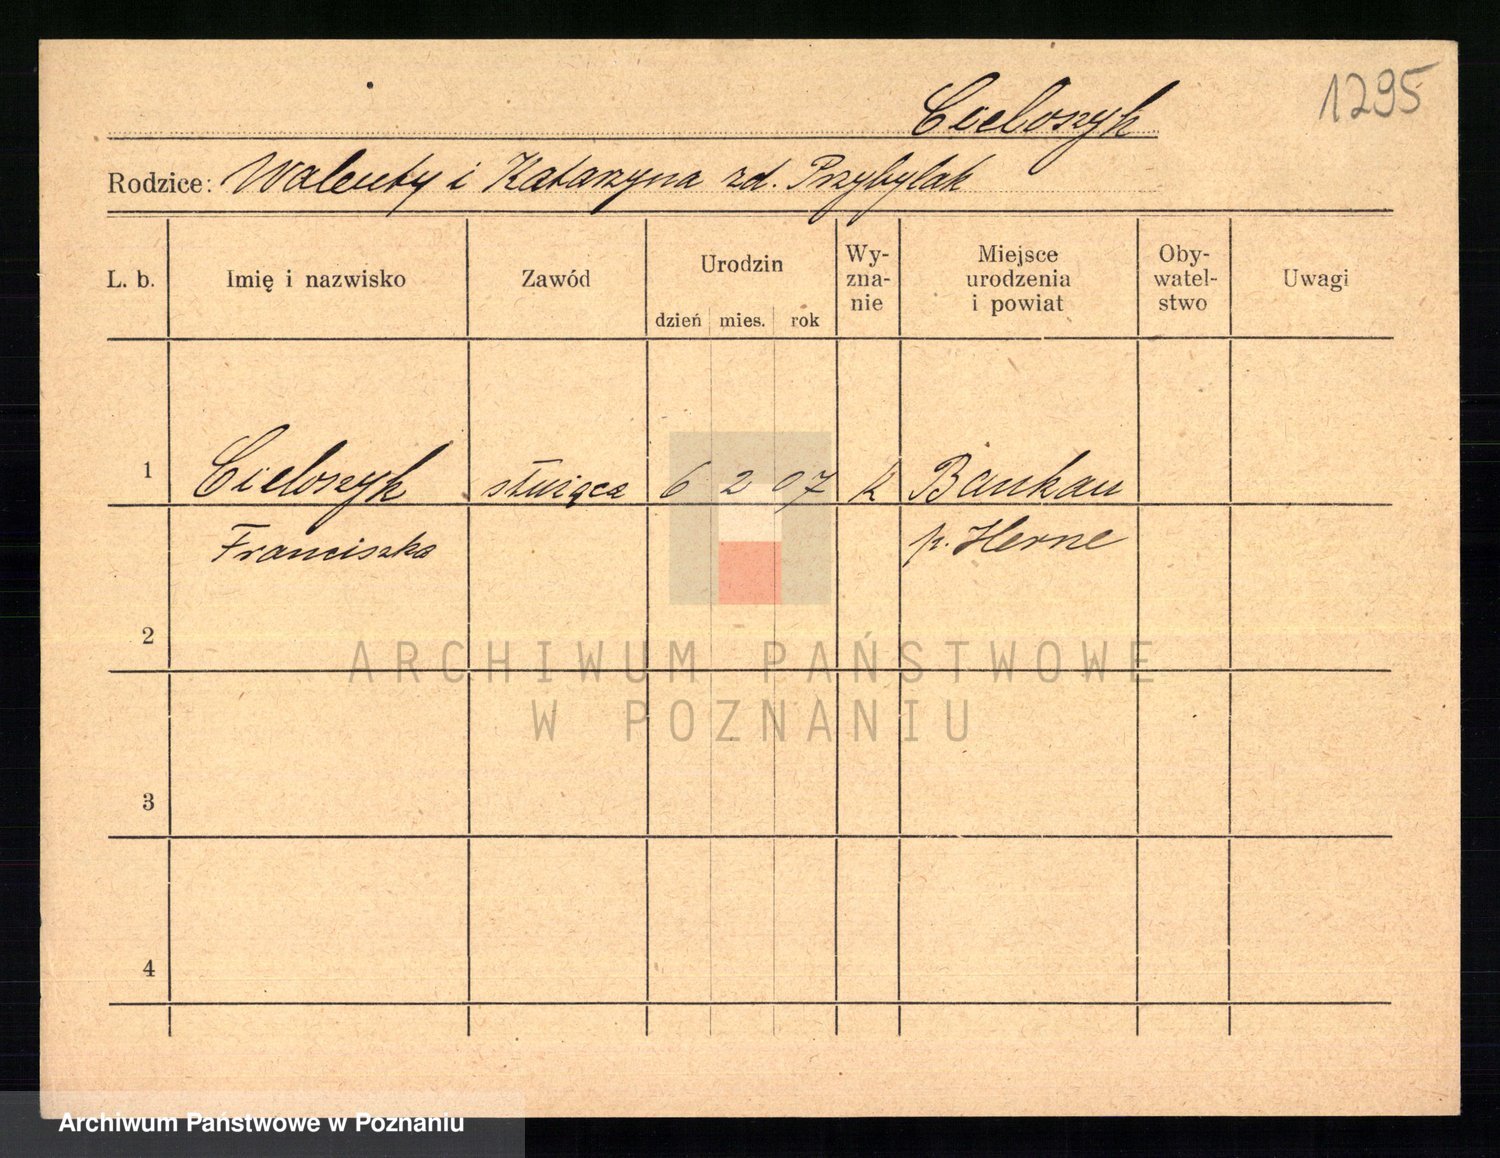 1295
Cieloszyk
Rodzice: Walenty i Katarzyna zd. Przybylak
L. b. Imię i nazwisko Zawód Urodzin dzień mies. rok Wy-zna-nie Miejsce urodzenia i powiat Oby-watel-stwo Uwagi
1 Cieloszyk służąca 6 2 07 K Baukau
Franciszka p. Herne
2
ARCHIWUM PAŃSTWOWE
W POZNANIU
3
4
Archiwum Państwowe w Poznaniu